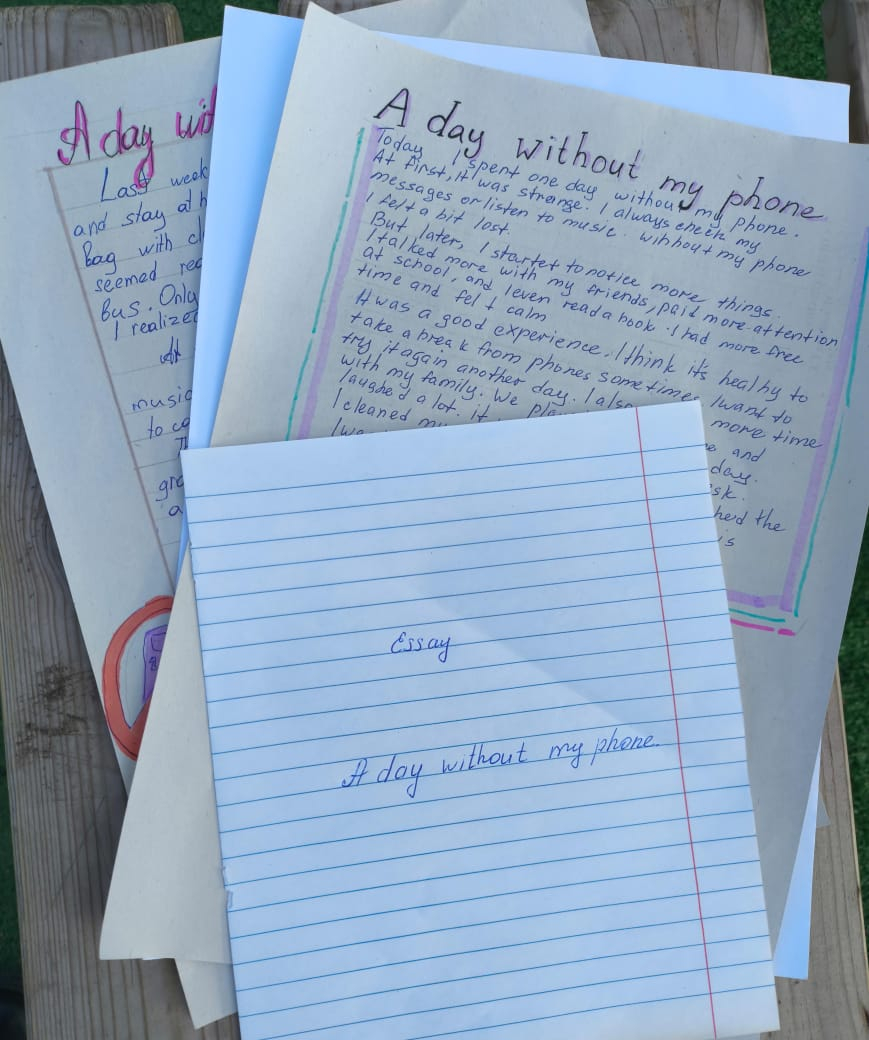 A day
Last week
and stay at
Bag with
seemed
Bus. Only
I realized
music
to
A day without my phone
Today I spent one day without my phone.
At first, it was strange. I always check my
messages or listen to music. Wihhout my phone
I felt a bit lost.
But later, I startet to notice more things.
I talked more with my friends, paid more attention
at school, and leven read a book. I had more free
time and felt calm
It was a good experience. I think it's healhy to
take a break from phones sometimes. I want to
try it again another day. I also more time
with my family. We and
laughed a lot. it day.
I cleaned
the
Essay
A day without my phone.